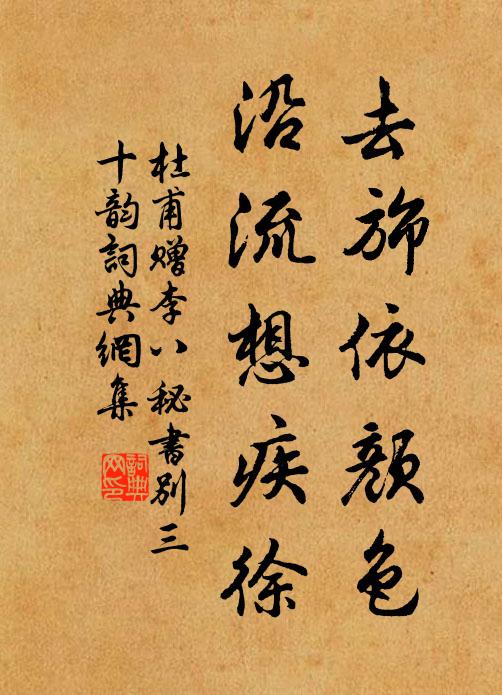 去旆依颜色
沿流想疾徐
杜甫赠李八秘書别三
十韵詞典網集
詞典
网印